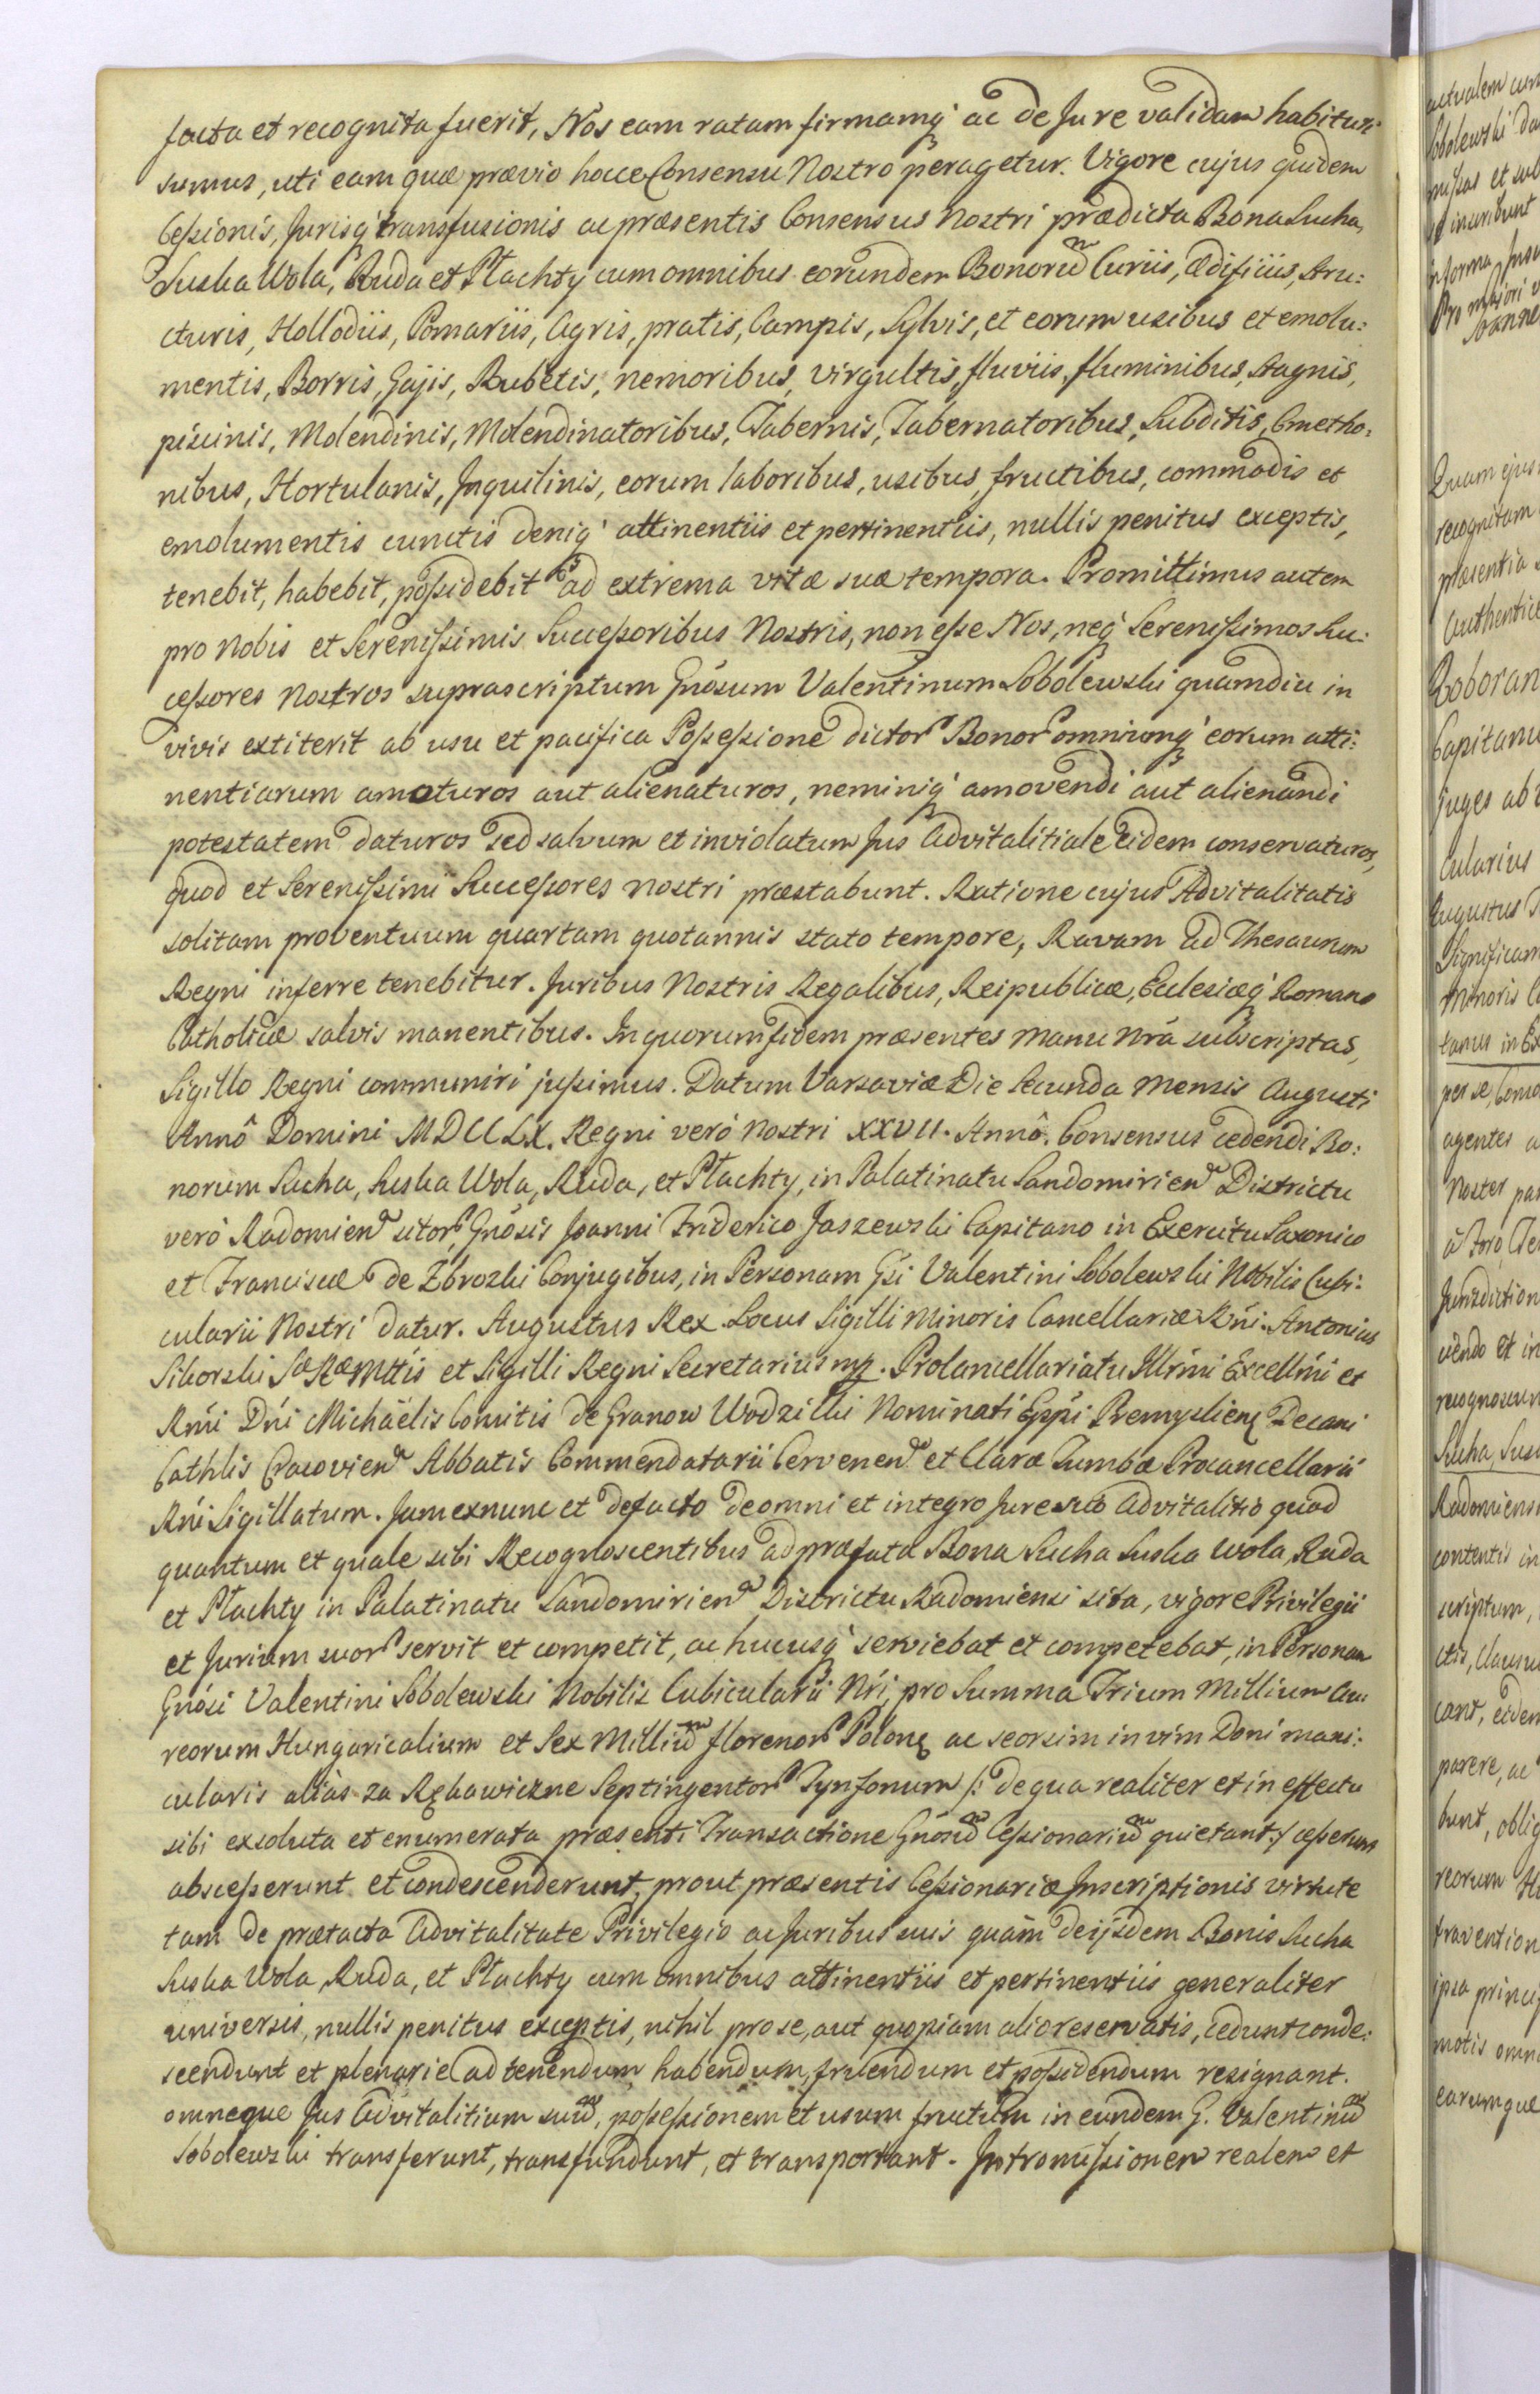 facta et recognita fuerit, Nos eam ratam firmamq́ ac de Jure validam habituri
sumus, uti eam quæ prævio hocce Consensu Nostro peragetur. Vigore cujus quidem
Cessionis, Jurisq́ transfusionis ac præsentis Consensus Nostri prædicta Bona Sucha,
Suska Wola, Ruda et Płachty cum omnibus eorundem Bonorum Curiis, Ædificiis, stru:
cturis, Hollodiis, Pomariis, Agris, pratis, Campis, Sylvis, et eorum usibus et emolu:
mentis, Borris, Gajis, Rubetis, nemoribus, virgultis, fluviis, fluminibus, stagnis,
piscinis, Molendinis, Molendinatoribus, Tabernis, Tabernatoribus, Subditis, Cmetho:
nibus, Hortulanis, Inquilinis, eorum laboribus, usibus, fructibus, commodis et
emolumentis cunctis deniq́ attinentiis et pertinentiis, nullis penitus exceptis,
tenebit, habebit, possidebit ad extrema vitæ suæ tempora. Promittimus autem
pro Nobis et Serenissimis Successoribus Nostris, non esse Nos, neq́ Serenissimos Suc:
cessores Nostros suprascriptum Gnósum Valentinum Sobolewski quamdiu in
vivis extiterit ab usu et pacifica Possessione dictor Bonor omniumq́ eorum atti:
nentiarum amoturos aut alienaturos, neminiq́ amovendi aut alienandi
potestatem daturos sed salvum et inviolatum Jus Advitalitiale eidem conservaturos,
quod et Serenissimi Successores nostri præstabunt. Ratione cujus Advitalitatis
solitam proventuum quartam quotannis stato tempore, Ravam ad Thesaurum
Regni inferre tenebitur. Juribus Nostris Regalibus, Reipublicæ, Ecclesiæq́ Romano
Catholicæ salvis manentibus. In quorum fidem præsentes manu Nrá subscriptas,
Sigillo Regni communiri jussimus. Datum Varsaviæ Die Secunda Mensis Augusti
Annô Domini MDCCLX. Regni veró Nostri XXVII. Annô. Consensus cedendi Bo:
norum Sucha, Suska Wola, Ruda, et Płachty, in Palatinatu Sandomirien Districtu
veró Radomien sitor, Gnósis Joanni Friderico Jaszewski Capitano in Exercitu Saxonico
et Franciscæ de Zbroski Conjugibus, in Personam Gsi Valentini Sobolewski Nobilis Cubi:
cularii Nostri datur. Augustus Rex. Locus Sigilli Minoris Cancellariæ Rńi. Antonius
Sikorski Sæ Ræ Mttis et Sigilli Regni Secretarius mp. Procancellariatu Illrími Excellími et
Rńmi Dńi Michaëlis Comitis de Granow Wodzicki Nominati Eppi Premyslien Decani
Cathlis Cracovien Abbatis Commendatarii Cervenen et Claræ Tumbæ Procancellarii
Rńi Sigillatum. Jam exnunc et defacto de omni et integro Jure suo Advitalitio quod
quantum et quale sibi Recognoscentibus ad præfata Bona Sucha Suska Wola, Ruda
et Płachty in Palatinatu Sandomirien Districtu Radomiensi sita, vigore Privilegii
et Jurium suor servit et competit, ac hucusq́ serviebat et competebat, in Personam
Gnósi Valentini Sobolewski Nobilis Cubicularii Nŕi, pro Summa Trium Millium Au:
reorum Hungaricalium et Sex Millium florenor Polon ac seorsim in vim Doni mani:
cularis aliàs za Rękawiczne Septingentor Tynfonum /: de qua realiter et in effectu
sibi exsoluta et enumerata præsenti Transactione Gnósum Cessionarium quietant :/ cesserunt
abscesserunt et condescenderunt, prout præsentis Cessionariæ Inscriptionis virtute
tam de prætacta Advitalitate Privilegio ac Juribus suis quàm de ijsdem Bonis Sucha
Suska Wola, Ruda, et Płachty cum omnibus attinentiis et pertinentiis generaliter
universis, nullis penitus exceptis, nihil pro se, aut quopiam alio reservatis, cedunt conde:
scendunt et plenarie ad tenendum habendum, fruendum et possidendum resignant.
omneque Jus Advitalitium suum, possessionem et usum fructum in eundem G. Valentinum
Sobolewski transferunt, transfundunt, et transportant. Intromissionem realem et
actualem
Sobolewski
missas et
informa
Pro majori
Quam ejus
recognitam
præsentia
Authentice
Roboran
Capitanu
juges ab
cularius
Augustus
Significam
Minoris
tamus in
per se,
agentes
Noster
Jurisdiction
vendo et in
recognoscun
Sucha, Sus
Radomiens
contentis in
scriptum,
ctis, Clausu
cant, eidem
parere, ac
bunt, oblig
reorum Hu
travention
ipsa princi
motis omni
earumque